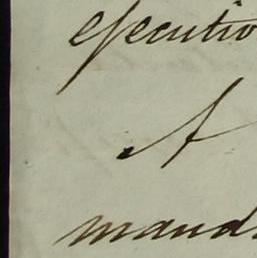 ejecutio
A
mand